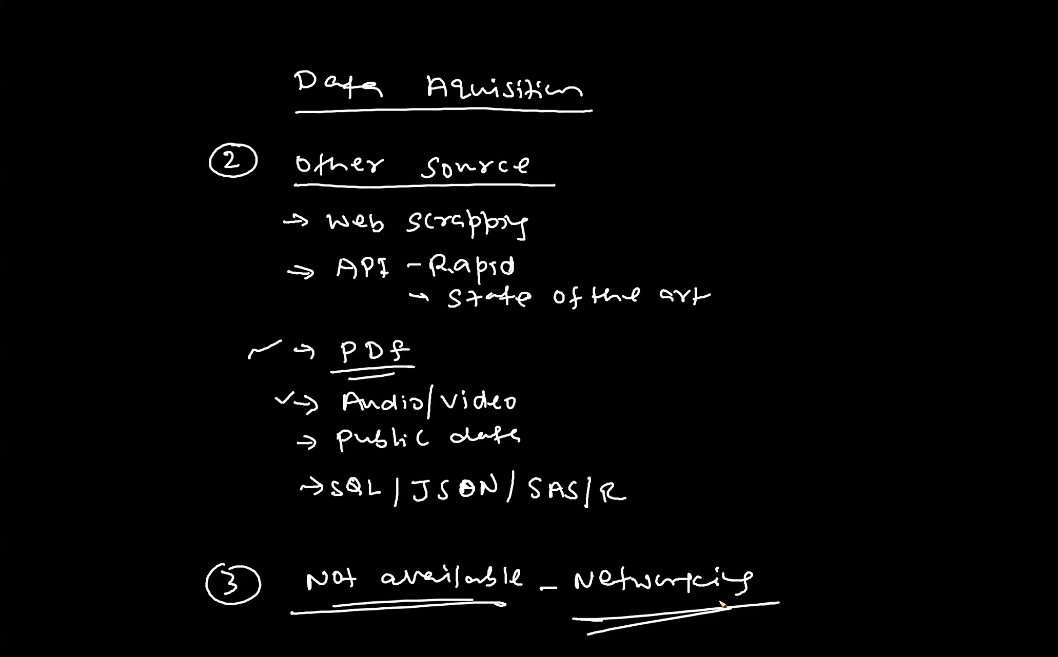 Data Aquisition
② Other Source
→ Web Scrapping
→ API - Rapid
→ State of the art
→ PDF
→ Audio/Video
→ Public data
→ SQL / JSON / SAS/R
③ Not available - Networking